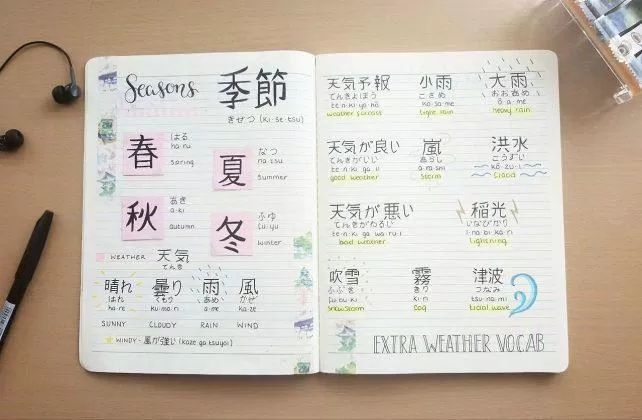 Seasons 季節
きせつ (Ki·se·tsu)
春 はる
ha·ru
spring
夏 なつ
na·tsu
summer
秋 あき
a·ki
autumn
冬 ふゆ
fu·yu
winter
WEATHER 天気
てんき
晴れ 曇り 雨 風
はれ くもり あめ かぜ
ha·re ku·mo·ri a·me ka·ze
SUNNY CLOUDY RAIN WIND
WINDY - 風が強い (kaze ga tsuyoi)
天気予報 小雨 大雨
てんきよほう こさめ おおあめ
te·n·ki·yo·hō ko·sa·me ō·a·me
weather forcast light rain heavy rain
天気が良い 嵐 洪水
あらし こうずい
te·n·ki ga i·i a·ra·shi kō·zu·i
good weather storm flood
天気が悪い 稲光
てんきがわるい いなびかり
te·n·ki ga wa·ru·i i·na·bi·ka·ri
bad weather lightning
吹雪 霧 津波
ふぶき きり つなみ
fu·bu·ki ki·ri tsu·na·mi
snowstorm fog tidal wave
EXTRA WEATHER VOCAB